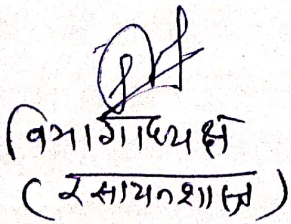 विभागाध्यक्ष
(रसायनशास्त्र)